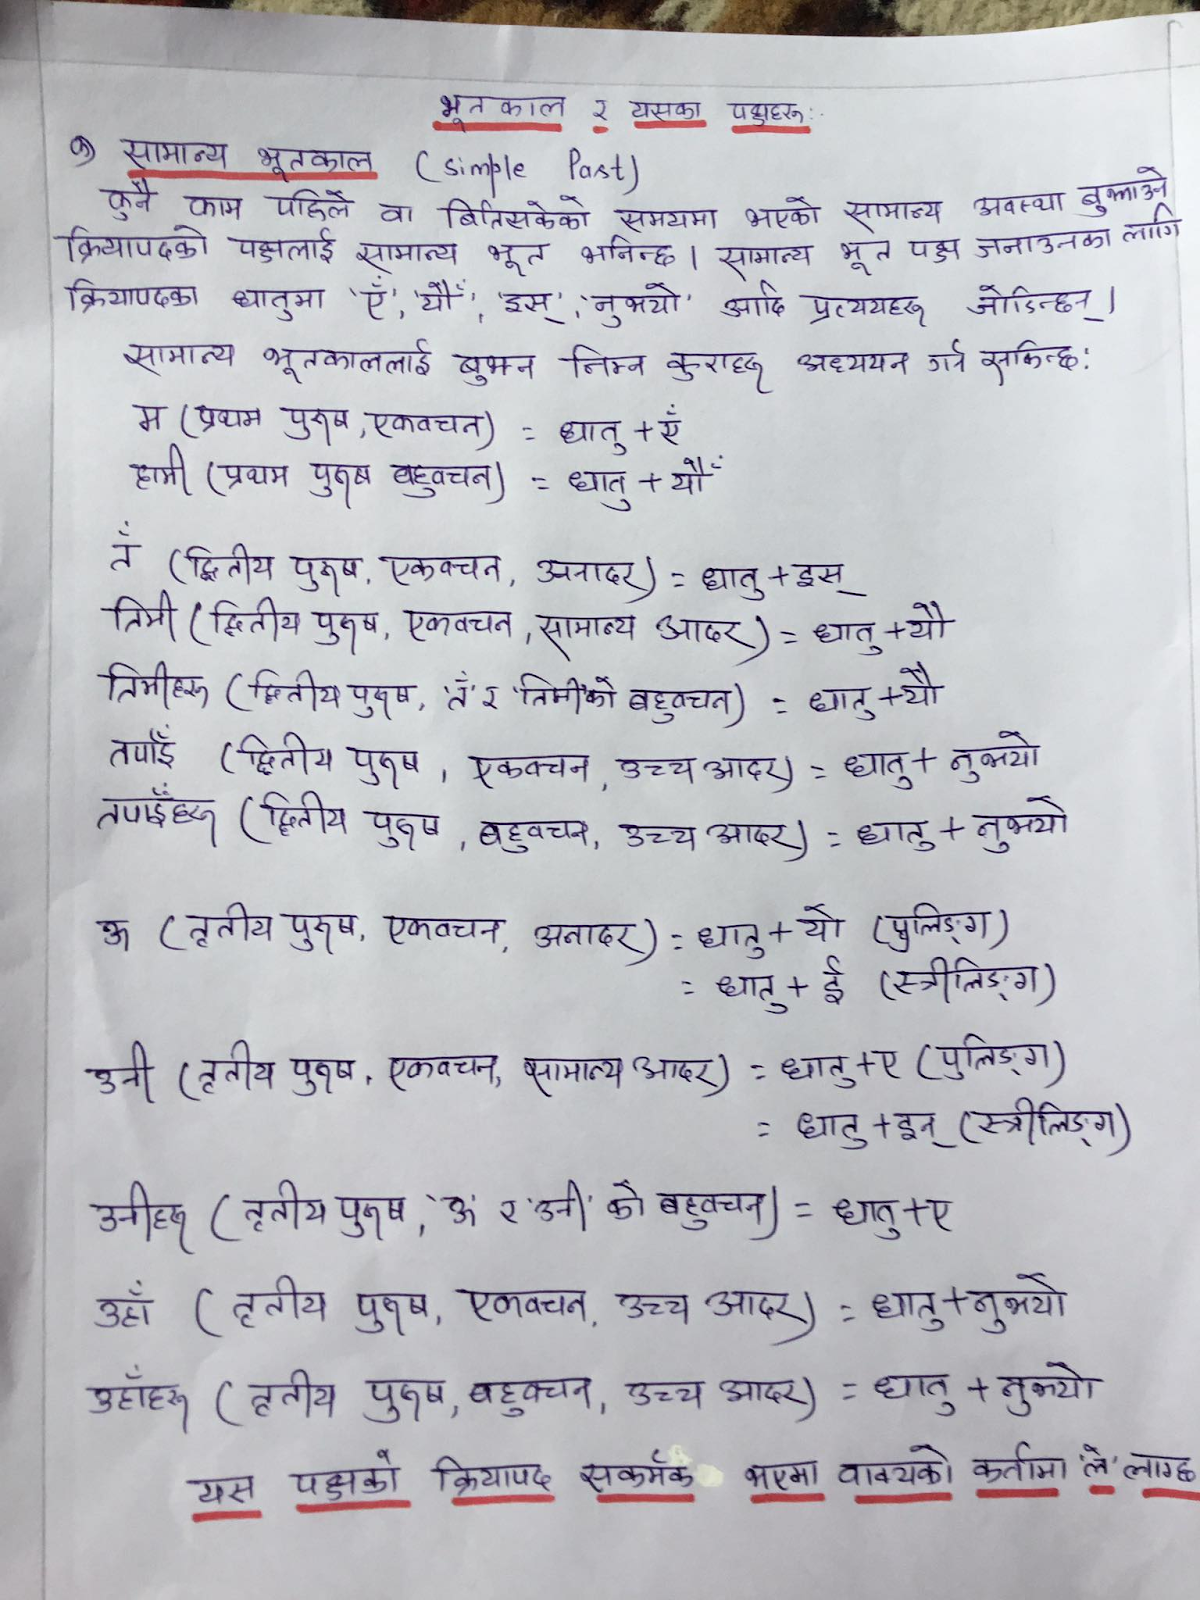 भूतकाल र यसका पक्षहरू:
क) सामान्य भूतकाल (Simple Past)
कुनै काम पहिले वा बितिसकेको समयमा भएको सामान्य अवस्था बुझाउने
क्रियापदको पक्षलाई सामान्य भूत भनिन्छ। सामान्य भूत पक्ष जनाउनका लागि
क्रियापदका धातुमा 'एँ', 'यौँ', 'इस्', 'नुभयो' आदि प्रत्ययहरू जोडिन्छन्।
सामान्य भूतकाललाई बुझ्न निम्न कुराहरू अध्ययन गर्न सकिन्छ:
म (प्रथम पुरूष, एकवचन) = धातु + एँ
हामी (प्रथम पुरूष बहुवचन) = धातु + यौँ
तँ (द्वितीय पुरूष, एकवचन, अनादर) = धातु + इस्
तिमी (द्वितीय पुरूष, एकवचन, सामान्य आदर) = धातु + यौ
तिमीहरू (द्वितीय पुरूष, 'तँ' र 'तिमी'को बहुवचन) = धातु + यौ
तपाईँ (द्वितीय पुरूष, एकवचन, उच्च आदर) = धातु + नुभयो
तपाईँहरू (द्वितीय पुरूष, बहुवचन, उच्च आदर) = धातु + नुभयो
ऊ (तृतीय पुरूष, एकवचन, अनादर) = धातु + यो (पुलिङ्ग)
= धातु + ई (स्त्रीलिङ्ग)
उनी (तृतीय पुरूष, एकवचन, सामान्य आदर) = धातु + ए (पुलिङ्ग)
= धातु + इन् (स्त्रीलिङ्ग)
उनीहरू (तृतीय पुरूष, 'ऊ' र 'उनी' को बहुवचन) = धातु + ए
उहाँ (तृतीय पुरूष, एकवचन, उच्च आदर) = धातु + नुभयो
उहाँहरू (तृतीय पुरूष, बहुवचन, उच्च आदर) = धातु + नुभयो
यस पक्षको क्रियापद सकर्मक भएमा वाक्यको कर्तामा 'ले' लाग्छ